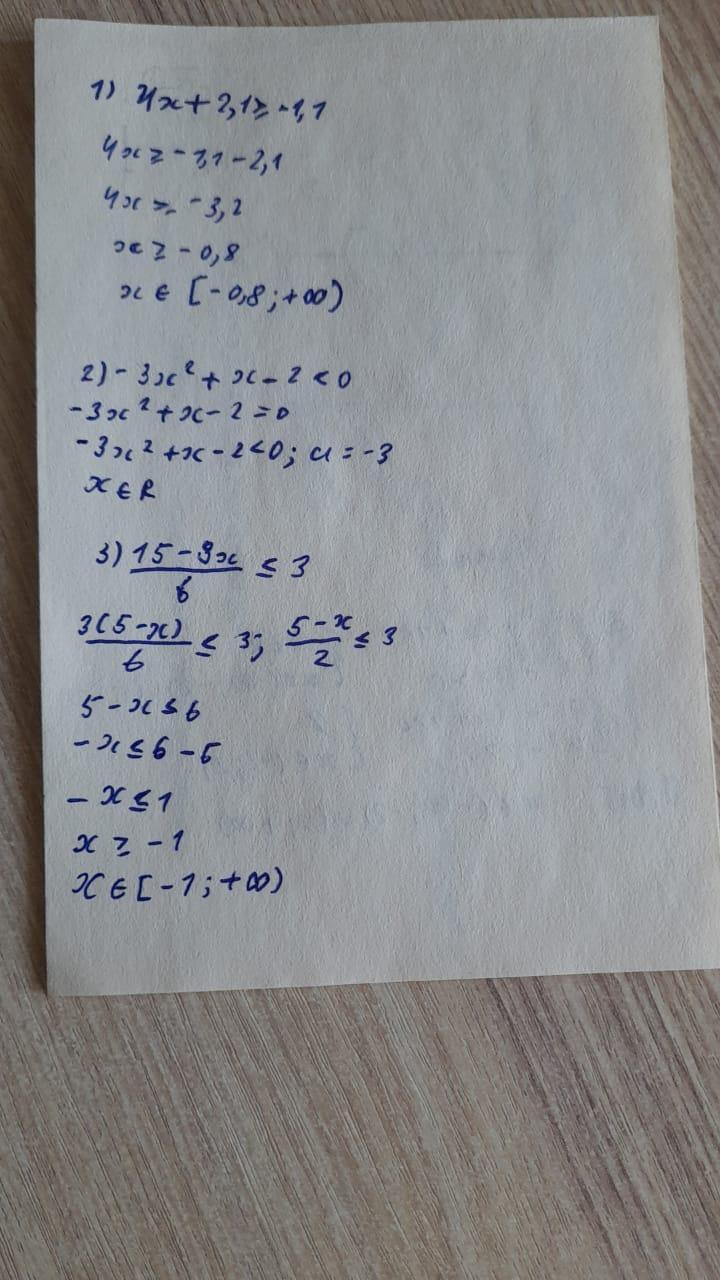 1) 4x + 2,1 ≥ -1,1
4x ≥ -1,1 - 2,1
4x ≥ -3,2
x ≥ -0,8
x ∈ [-0,8; +∞)
2) -3x² + x - 2 < 0
-3x² + x - 2 = 0
-3x² + x - 2 < 0; a = -3
x ∈ R
3) (15 - 3x)/6 ≤ 3
3(5-x)/6 ≤ 3; (5-x)/2 ≤ 3
5 - x ≤ 6
-x ≤ 6 - 5
-x ≤ 1
x ≥ -1
x ∈ [-1; +∞)